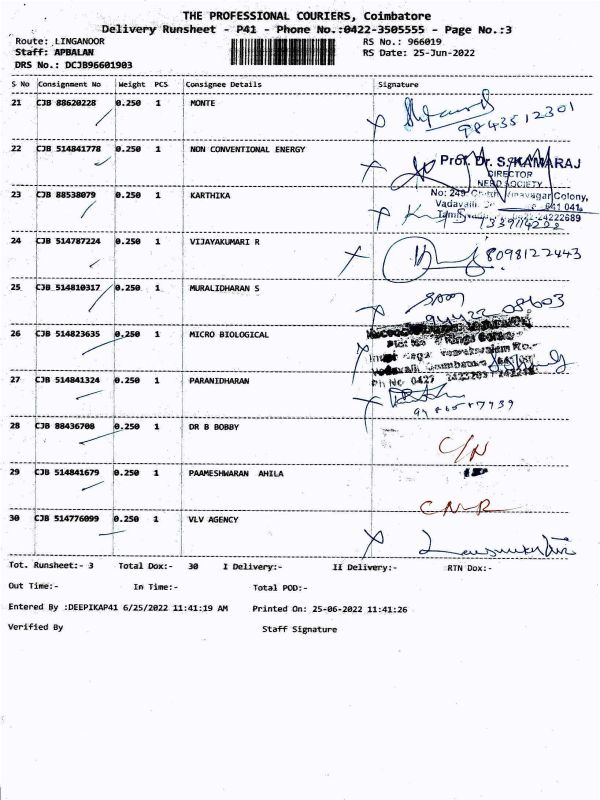 THE PROFESSIONAL COURIERS, Coimbatore
Delivery Runsheet - P41 - Phone No.:0422-3505555 - Page No.:3
Route: LINGANOOR RS No.: 966019
Staff: APBALAN RS Date: 25-Jun-2022
DRS No.: DCJB96601903
S No Consignment No Weight PCS Consignee Details Signature
21 CJB 88620228 0.250 1 MONTE
9843512301
22 CJB 514841778 0.250 1 NON CONVENTIONAL ENERGY
Prof. Dr. S. KAMARAJ
DIRECTOR
NEED SOCIETY
23 CJB 88538079 0.250 1 KARTHIKA
No: 249 Vinayagar Colony,
Vadavalli, 641 041.
24222689
24 CJB 514787224 0.250 1 VIJAYAKUMARI R
8098122443
25 CJB 514810317 0.250 1 MURALIDHARAN S
94422 08603
26 CJB 514823635 0.250 1 MICRO BIOLOGICAL
Ph No 0422
27 CJB 514841324 0.250 1 PARANIDHARAN
28 CJB 88436708 0.250 1 DR B BOBBY
C/N
29 CJB 514841679 0.250 1 PAAMESHWARAN AHILA
CNR
30 CJB 514776099 0.250 1 VLV AGENCY
Tot. Runsheet:- 3 Total Dox:- 30 I Delivery:- II Delivery:- RTN Dox:-
Out Time:- In Time:- Total POD:-
Entered By :DEEPIKAP41 6/25/2022 11:41:19 AM Printed On: 25-06-2022 11:41:26
Verified By Staff Signature